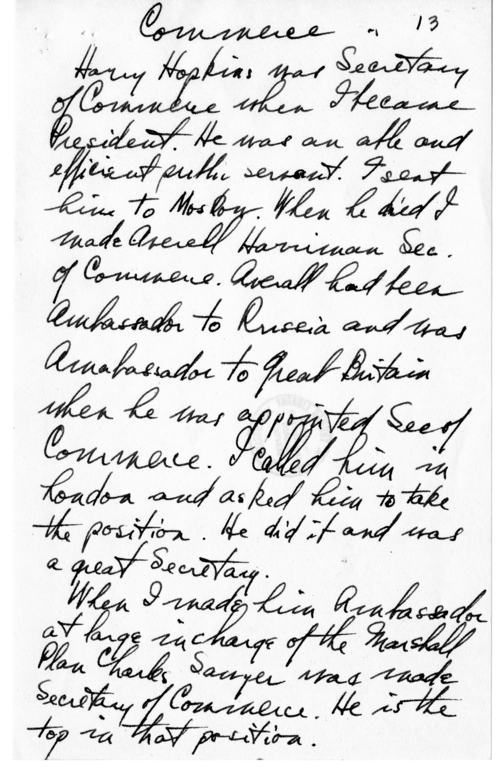 Commerce .. 13
Harry Hopkins was Secretary
of Commerce when I became
President. He was an able and
efficient public servant. I sent
him to Moscow. When he died I
made Averell Harriman Sec.
of Commerce. Averall had been
Ambassador to Russia and was
Amabassador to Great Britain
when he was appointed Sec of
Commerce. I called him in
London and asked him to take
the position. He did it and was
a great Secretary.
When I made him Ambassador
at large in charge of the Marshall
Plan Charles Sawyer was made
Secretary of Commerce. He is the
top in that position.